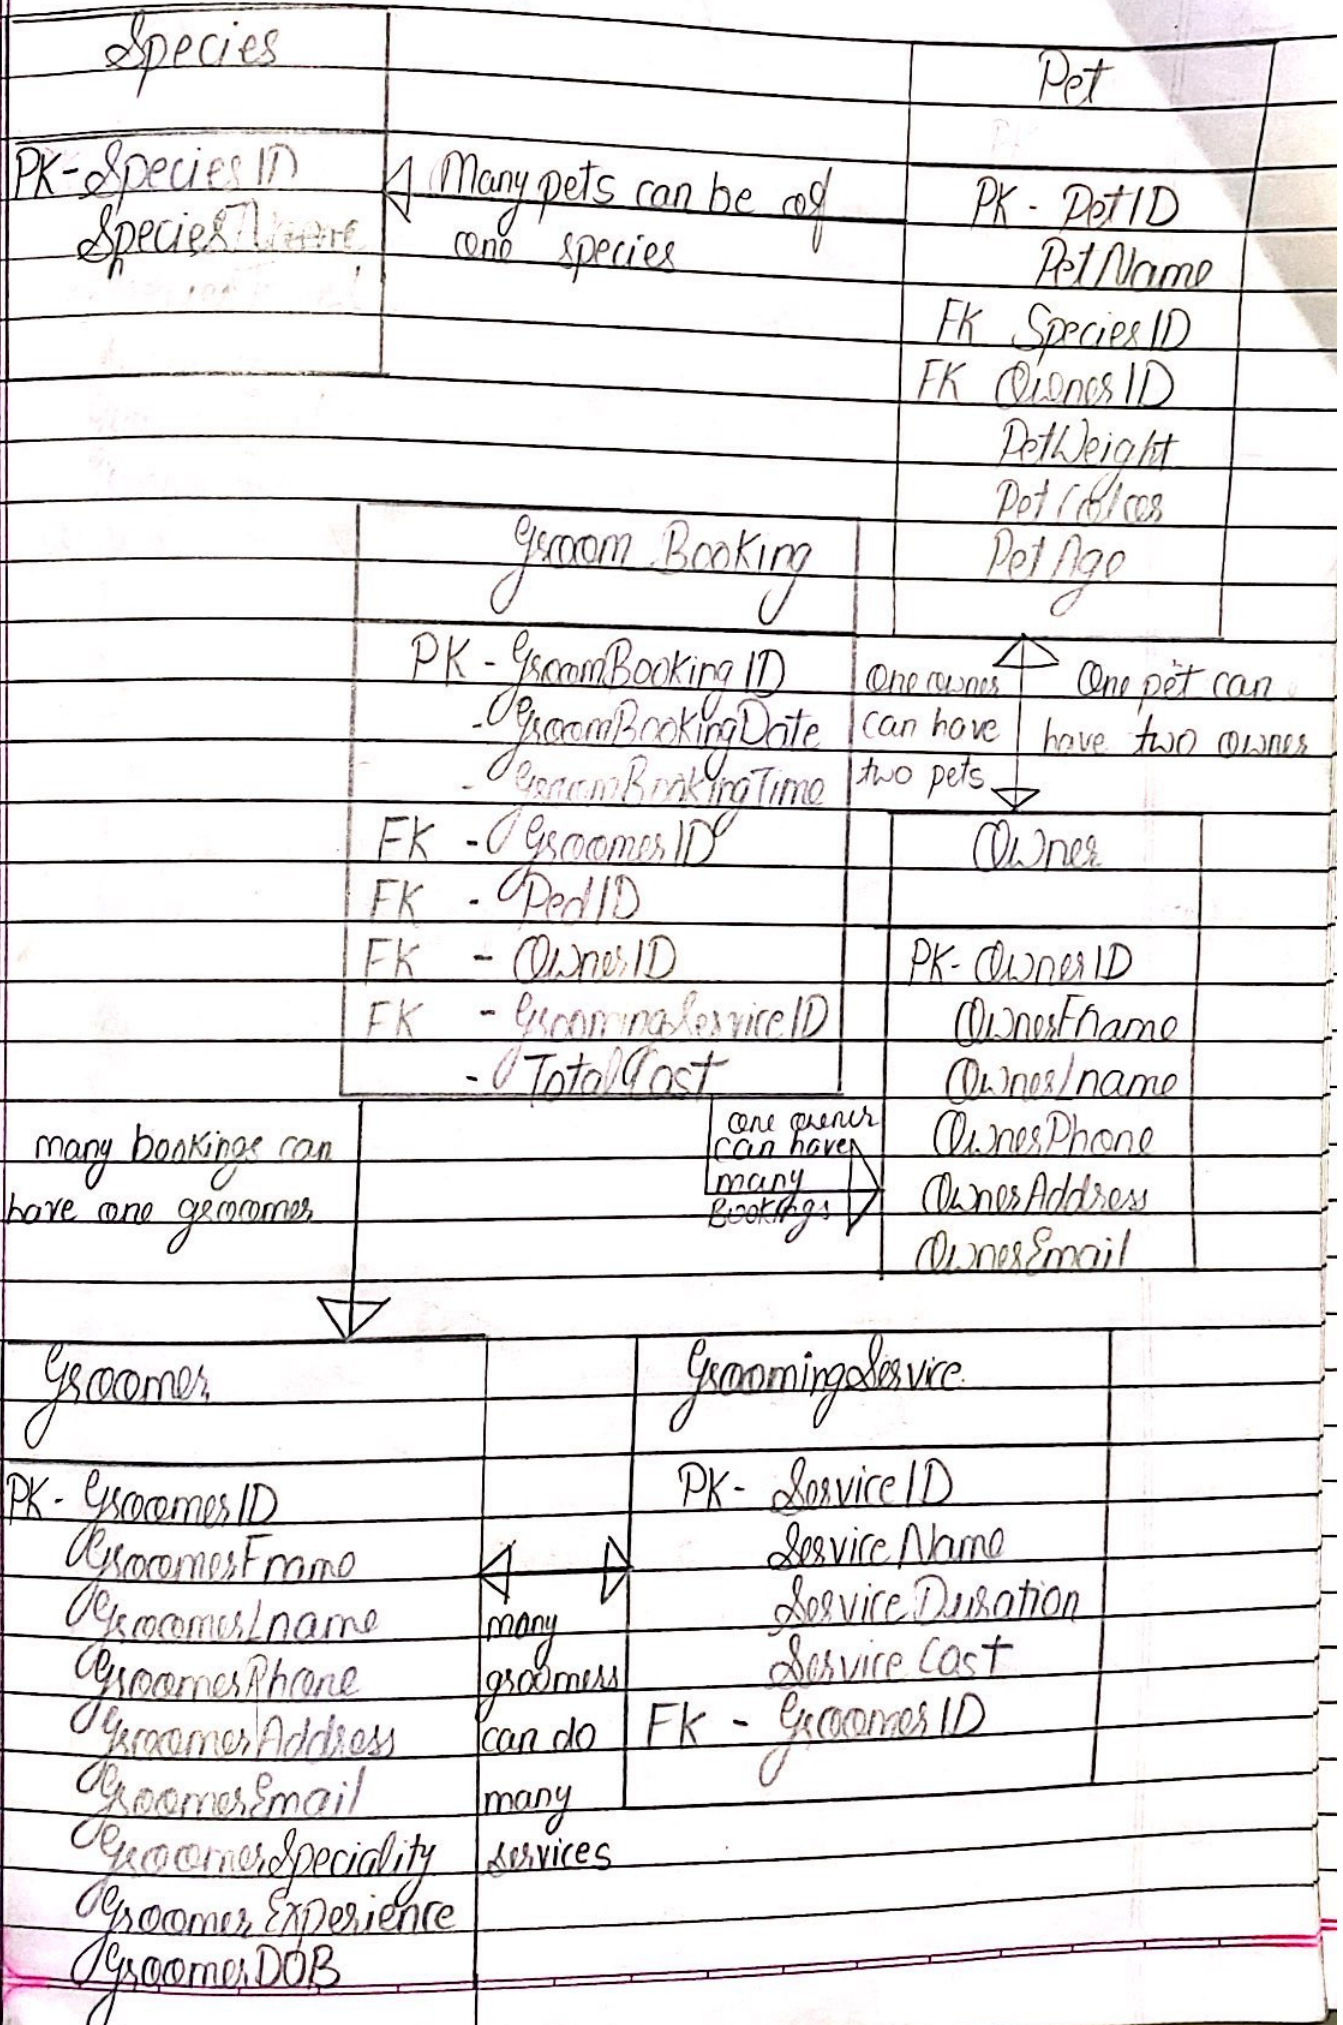 Species
PK-SpeciesID
SpeciesName
Many pets can be of
one species
Pet
PK - PetID
PetName
FK SpeciesID
FK OwnerID
PetWeight
PetAge
Groom Booking
PK - GroomBookingID
- GroomBookingDate
- GroomBookingTime
FK - GroomerID
FK - PedID
FK - OwnerID
FK - GroomingServiceID
- TotalCost
One owner
can have
two pets
One pet can
have two owner
Owner
PK- OwnerID
OwnerFname
OwnerLname
OwnerPhone
OwnerAddress
OwnerEmail
many bookings can
have one groomer
one owner
can have
many
Bookings
Groomer
PK - GroomerID
GroomerFname
GroomerLname
GroomerPhone
GroomerAddress
GroomerEmail
GroomerSpeciality
GroomerExperience
GroomerDOB
many
groomers
can do
many
services
GroomingService
PK- ServiceID
ServiceName
ServiceDuration
ServiceCost
FK - GroomerID